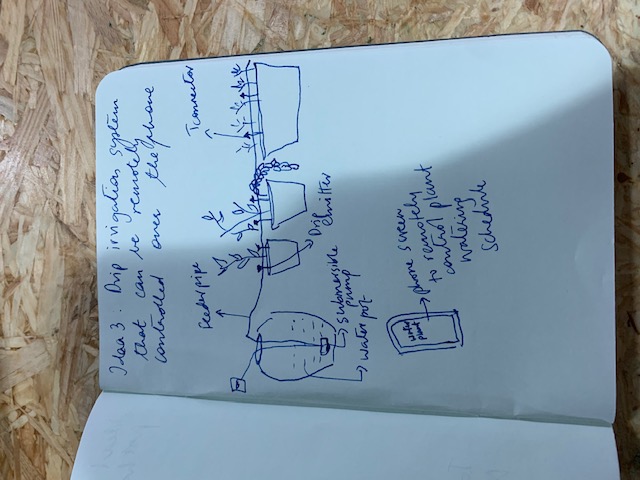 Idea 3. Drip irrigation system
that can be remotely
controlled over the phone
Feeder pipe
T connector
Drip
emitter
submersible
pump
water
pot
water
plant
phone screen
to remotely
control plant
watering
schedule